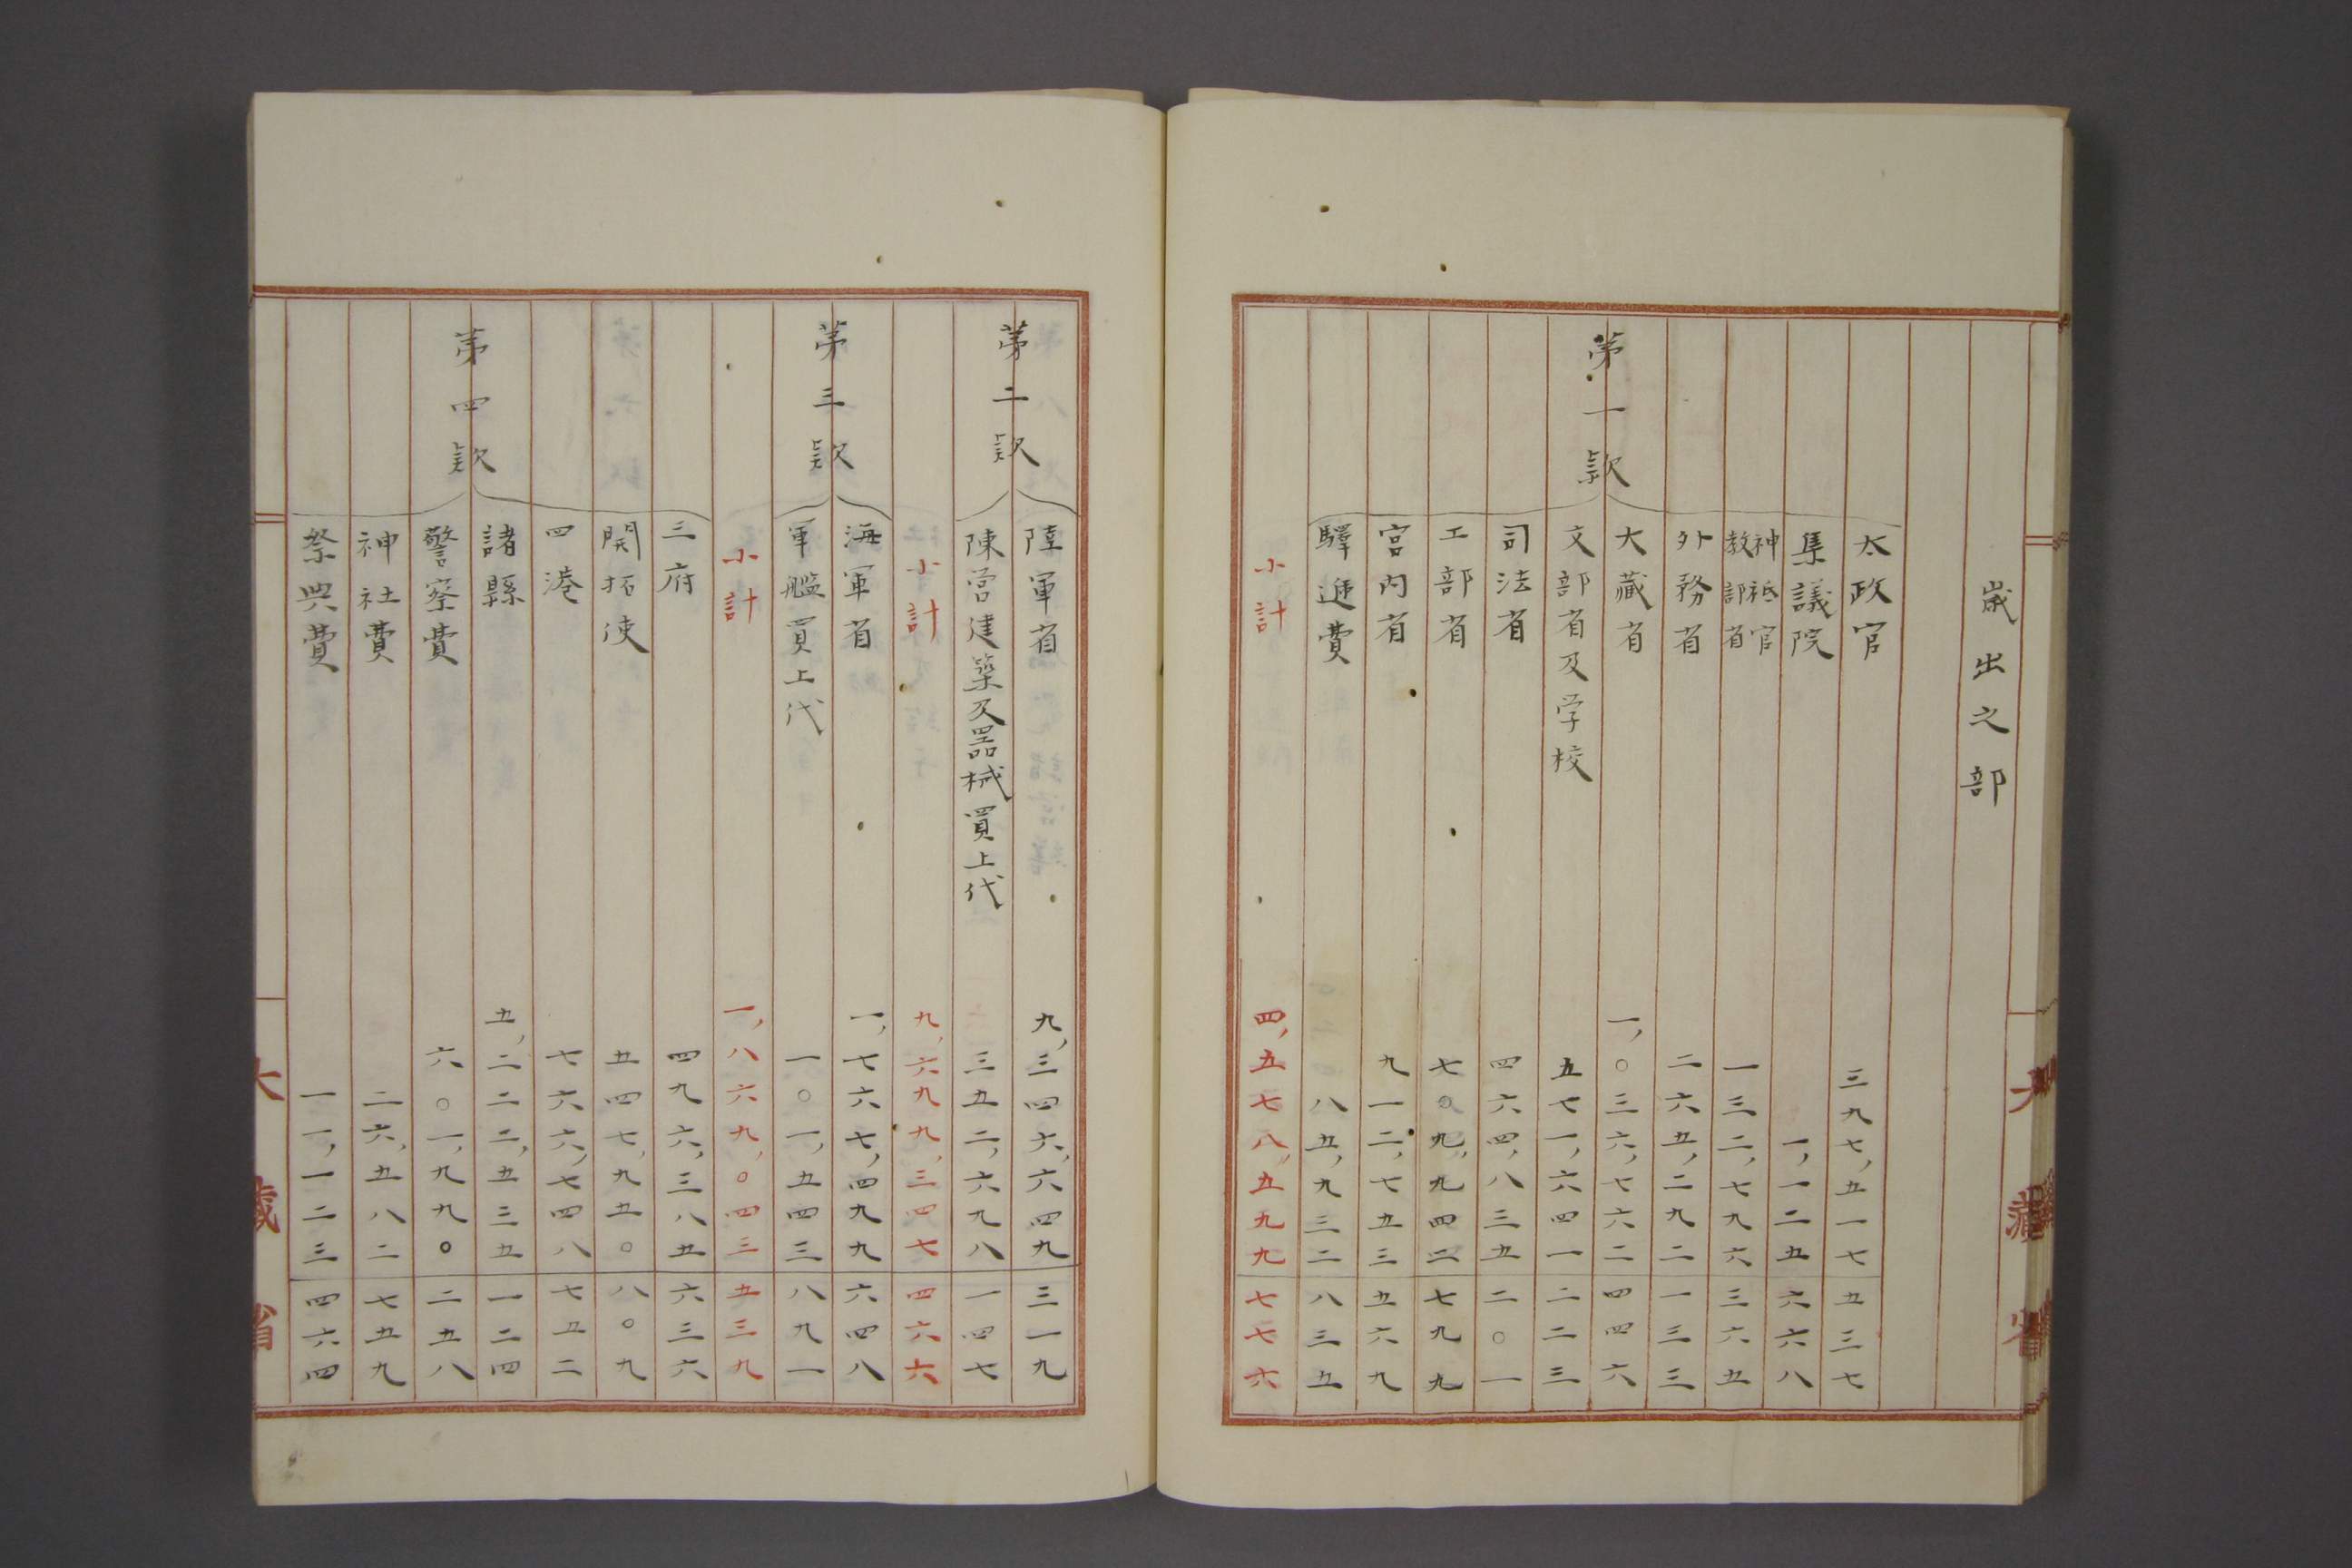 歳出之部
第一款
太政官 三九七,五一七 五三七
集議院 一,一二五 六六八
神祇官
教部省 一三二,七九六 三六五
外務省 二六五,二九二 一三三
大蔵省 一,〇三六,七六二 四四六
文部省及学校 五七一,六四一 二二三
司法省 四六四,八三五 二〇一
工部省 七〇九,九四二 七九九
宮内省 九一二,七五三 五六九
驛逓費 八五,九三二 八三五
小計 四,五七八,五九九 七七六
第二款
陸軍省 九,三四六,六四九 三一九
陳営建築及器械買上代 三五二,六九八 一四七
小計 九,六九九,三四七 四六六
第三款
海軍省 一,七六七,四九九 六四八
軍艦買上代 一〇一,五四三 八九一
小計 一,八六九,〇四三 五三九
第四款
三府 四九六,三八五 六三六
開拓使 五四七,九五〇 八〇九
四港 七六六,七四八 七五二
諸縣 五,二二二,五三五 一二四
警察費 六〇一,九九〇 二五八
神社費 二六,五八二 七五九
祭典費 一一,一二三 四六四
大蔵省